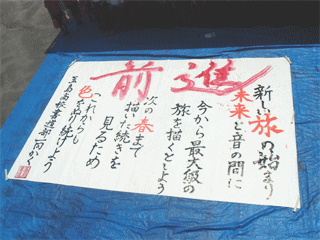 前進
新しい旅の始まり
未来と音の間に
今から最大級の
旅を描くとしよう
次の春まで
描いた続きを
見るため
これからも
色をぬり続けよう
五島高校書道部一同かく